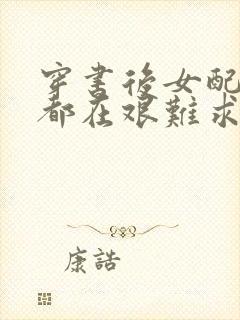 穿書後女配
都在艱難求
康誥